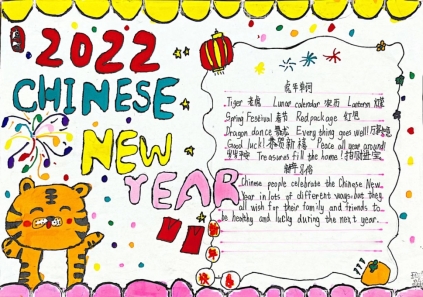 2022
CHINESE
NEW
YEAR
虎年单词
Tiger 老虎 Lunar calendar 农历 Lantern 灯笼
Spring Festival 春节 Red package 红包
Dragon dance 舞龙 Everything goes well! 万事如意
Good luck! 恭贺新禧 Peace all year around!
岁岁平安 Treasures fill the home! 招财进宝
Chinese people celebrate the Chinese New
Year in lots of different ways, but they
all wish for their family and friends to
be healthy and lucky during the next year.
新
年
快
乐